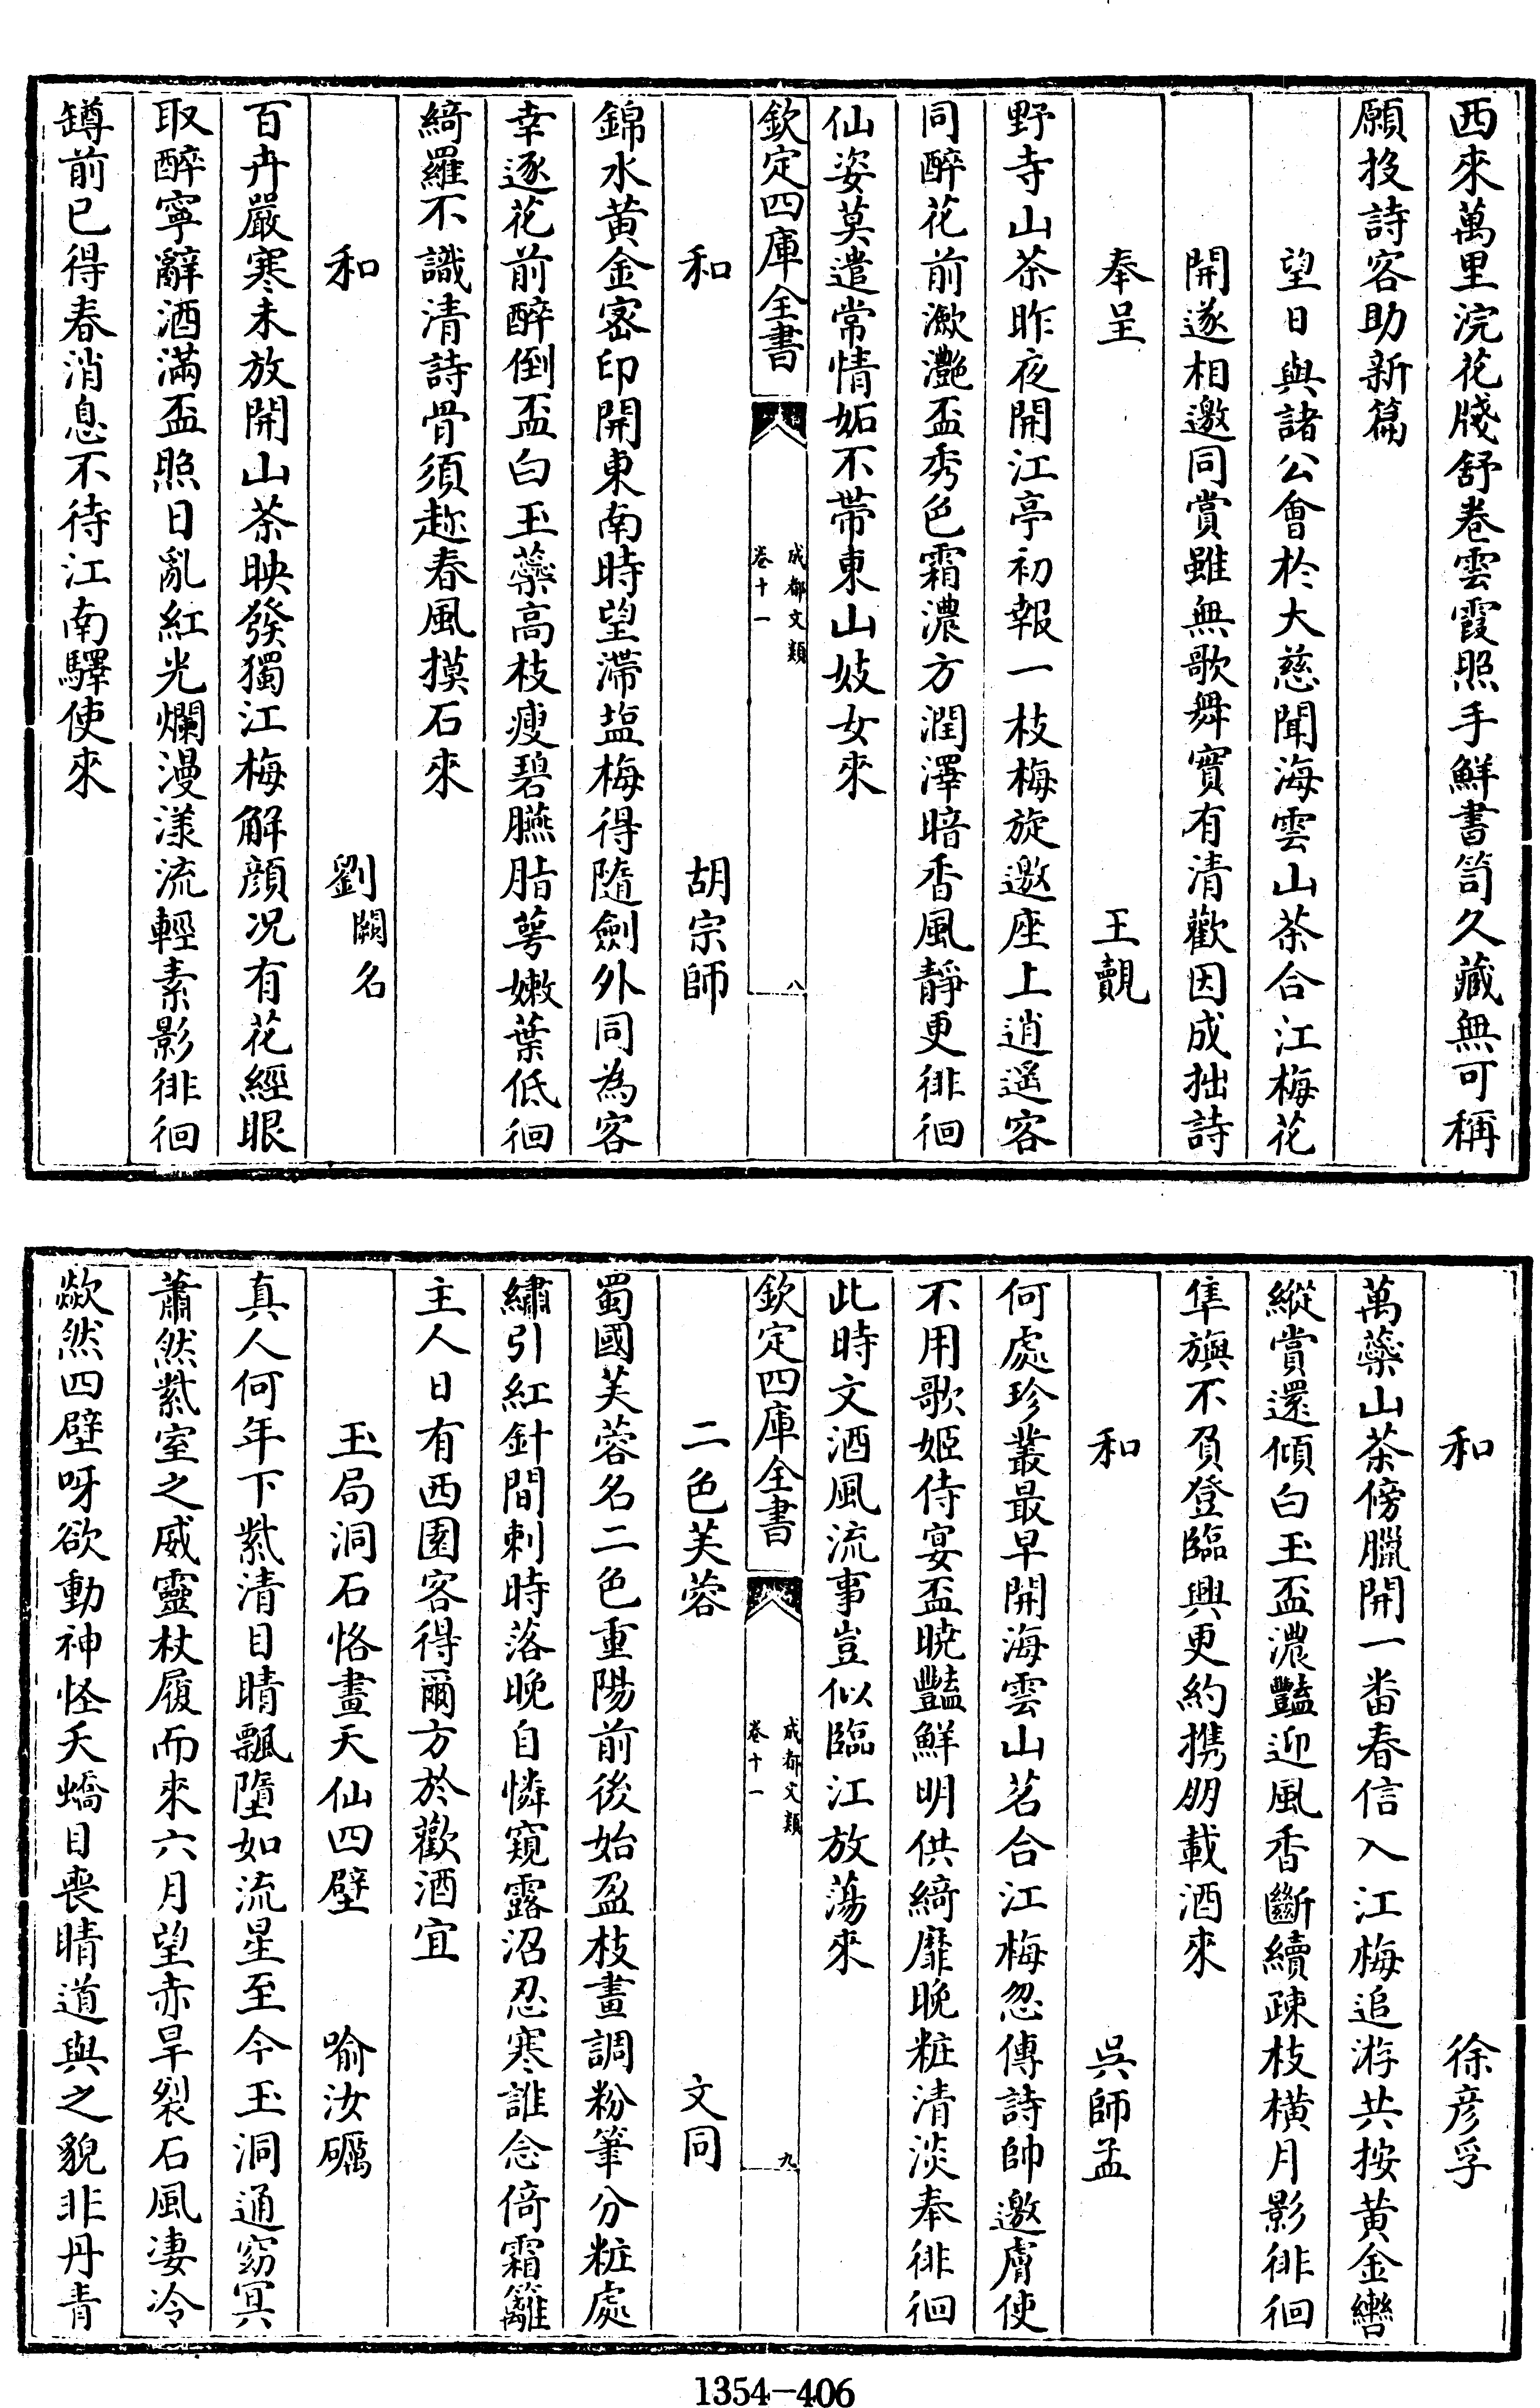 西來萬里浣花牋舒卷雲霞照手鮮書笥久藏無可稱
願投詩客助新篇
望日與諸公會於大慈聞海雲山茶合江梅花
開遂相邀同賞雖無歌舞實有清歡因成拙詩
奉呈　王覿
野寺山茶昨夜開江亭初報一枝梅旋邀座上逍遥客
同醉花前瀲灔盃秀色霜濃方潤澤暗香風靜更徘徊
仙姿莫遣常情妬不帶東山妓女來
欽定四庫全書　成都文類　卷十一　八
和　胡宗師
錦水黄金宻印開東南時望滯盐梅得隨劍外同為客
幸逐花前醉倒盃白玉蘂高枝瘦碧臙脂蕚嫩葉低徊
綺羅不識清詩骨須趂春風摸石來
和　劉闕名
百卉嚴寒未放開山茶映發獨江梅解顔况有花經眼
取醉寧辭酒滿盃照日亂紅光爛漫漾流輕素影徘徊
罇前已得春消息不待江南驛使來
和　徐彦孚
萬蘂山茶傍臘開一畨春信入江梅追游共按黄金轡
縱賞還傾白玉盃濃豔迎風香斷續疎枝横月影徘徊
隼旟不負登臨興更約携朋載酒來
和　吳師孟
何處珍叢最早開海雲山茗合江梅忽傳詩帥邀膚使
不用歌姬侍宴盃曉豔鮮明供綺靡晚粧清淡奉徘徊
此時文酒風流事豈似臨江放蕩來
欽定四庫全書　成都文類　卷十一　九
二色芙蓉　文同
蜀國芙蓉名二色重陽前後始盈枝畫調粉筆分粧處
繡引紅針間刺時落晚自憐窺露沼忍寒誰念倚霜籬
主人日有西園客得爾方於歡酒宜
玉局洞石恪畫天仙四壁　喻汝礪
真人何年下紫清目睛飄墮如流星至今玉洞通窈冥
蕭然紫室之威靈杖履而來六月望赤旱裂石風凄冷
歘然四壁呀欲動神怪夭蟜目喪睛道與之貌非丹青
1354—406